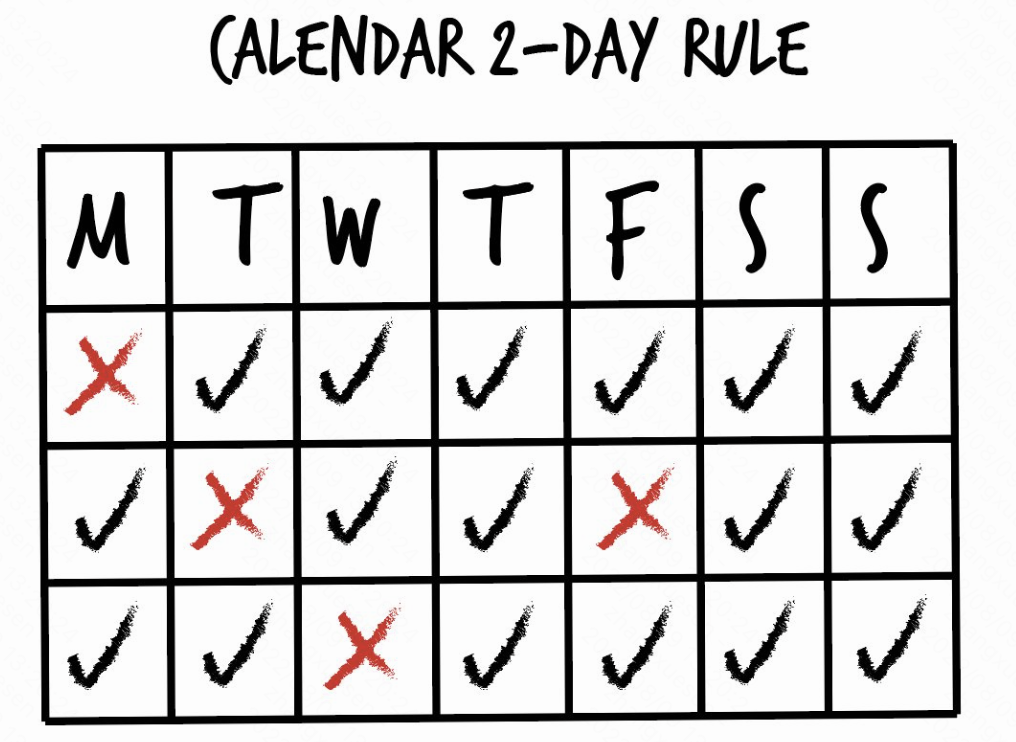 CALENDAR 2-DAY RULE
M T W T F S S